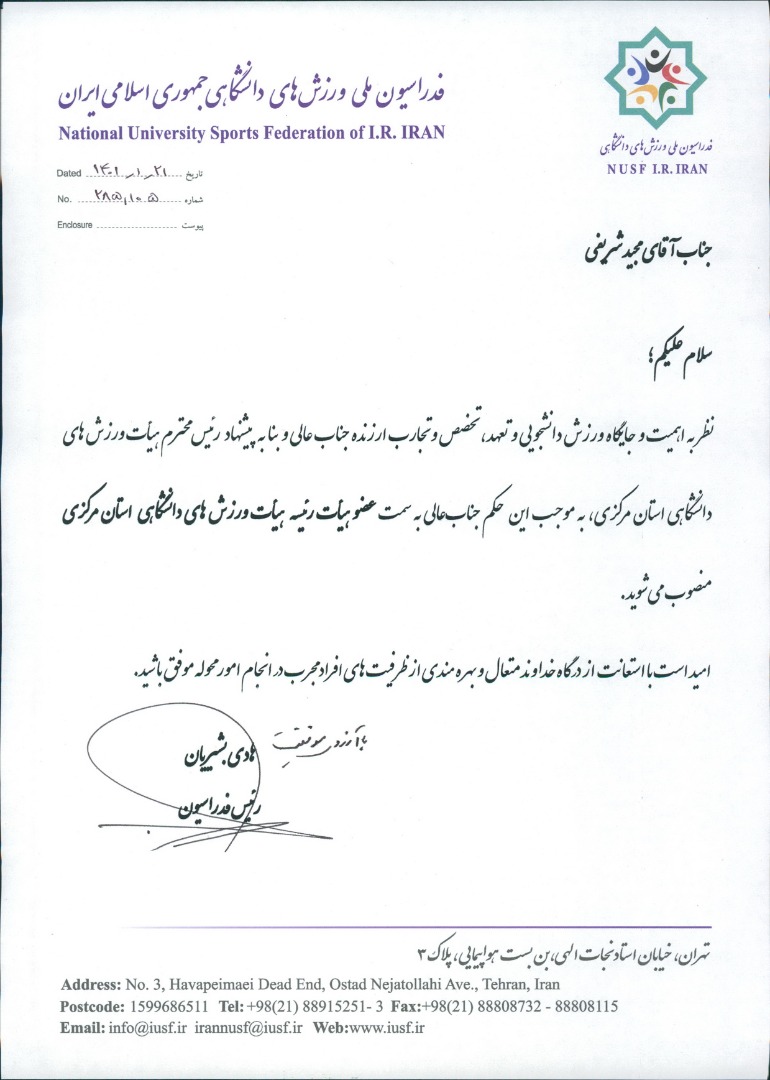 فدراسیون ملی ورزش های دانشگاهی جمهوری اسلامی ایران
National University Sports Federation of I.R. IRAN
فدراسیون ملی ورزش های دانشگاهی
NUSF I.R.IRAN
Dated ۱۴۰۱/۱/۲۱ تاریخ
No. شماره
Enclosure پیوست
جناب آقای مجید شریفی
سلام علیکم؛
نظر به اهمیت و جایگاه ورزش دانشجویی و تعهد، تخصص و تجارب ارزنده جناب عالی و بنا به پیشنهاد رئیس محترم هیأت ورزش های
دانشگاهی استان مرکزی، به موجب این حکم جناب عالی به سمت عضو هیأت رئیسه هیأت ورزش های دانشگاهی استان مرکزی
منصوب می شوید.
امید است با استعانت از درگاه خداوند متعال و بهره مندی از ظرفیت های افراد مجرب در انجام امور محوله موفق باشید.
با آرزوی موفقیت
هادی بشیریان
رئیس فدراسیون
تهران، خیابان استاد نجات الهی، بن بست هواپیمایی، پلاک ۳
Address: No. 3, Havapeimaei Dead End, Ostad Nejatollahi Ave., Tehran, Iran
Postcode: 1599686511 Tel: +98(21) 88915251- 3 Fax:+98(21) 88808732 - 88808115
Email: info@iusf.ir irannusf@iusf.ir Web:www.iusf.ir